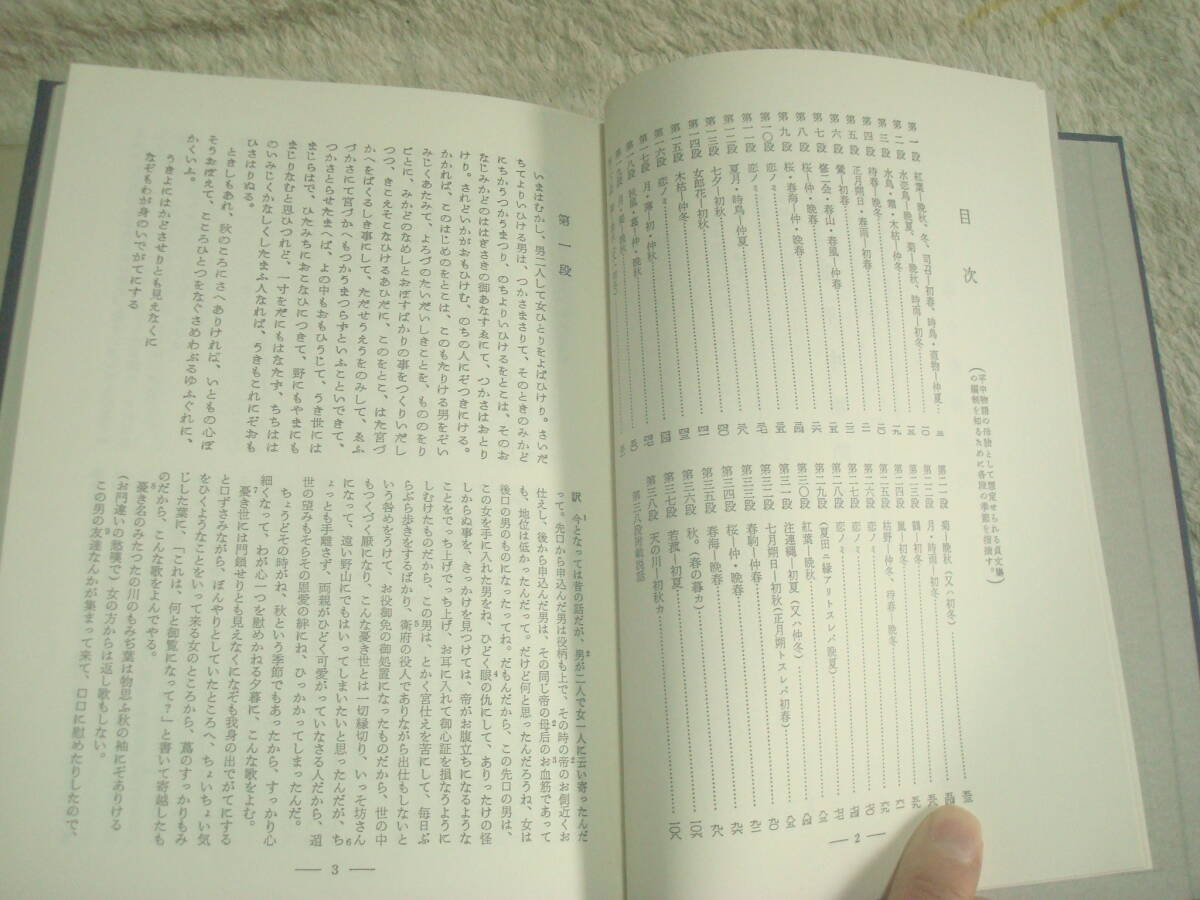 目次
(平中物語の母胎として想定せられる貞文集
の編制を知るために各段の季節を指摘す。)
第一段 紅葉―晩秋。冬、司召―初春、時鳥・直物―仲夏
第二段 水恋鳥―晩夏。菊―晩秋、時雨―初冬
第三段 水鳥・霜・木枯―仲冬
第四段 待春―晩冬
第五段 正月朔日・春雨―初春
第六段 鶯―初春
第七段 修二会・春山・春風―仲春
第八段 桜―仲・晩春
第九段 桜・春海―仲・晩春
第一〇段 恋ノミ
第一一段 恋ノミ
第一二段 夏月・時鳥―仲夏
第一三段 七夕―初秋
第一四段 女郎花―初秋
第一五段 木枯―仲冬
第一六段 恋ノミ
第一七段 月・薄―初・仲秋
第一八段 秋風・霧―仲・晩秋
第二一段 菊―晩秋(又ハ初冬)
第二二段 月・時雨―初冬
第二三段 菊―初冬
第二四段 嵐―初冬
第二五段 枯野―仲冬、待春―晩冬
第二六段 恋ノミ
第二七段 恋ノミ
第二八段 恋ノミ
第二九段 (夏田ニ縁アリトスレバ晩夏)
第三〇段 紅葉―晩秋
第三一段 注連縄―初夏(又ハ仲冬)
第三二段 七月朔日―初秋(正月朔トスレバ初春)
第三三段 春駒―仲春
第三四段 桜―仲・晩春
第三五段 春海―晩春
第三六段 秋。(春の暮カ)
第三七段 若菰―初夏
第三八段 天の川―初秋カ
第三八段附載説話
― 2 ―
第一段
いまはむかし、男二人して女ひとりをよばひけり。さいだ
ちてよりいひける男は、つかさまさりて、そのときのみかど
にちかうつかうまつり、のちよりいひけるをとこは、そのお
なじみかどのははぎさきの御あなすゑにて、つかさはおとり
けり。されどいかがおもひけむ、のちの人にぞつきにける。
かかれば、このはじめのをとこは、このもたりける男をぞい
みじくあたみて、よろづのたいだいしきことを、もののをり
ごとに、みかどのなめしとおぼすばかりの事をつくりいだし
つつ、きこえそこなひけるあひだに、このをとこ、はた宮づ
かへをばくるしき事にして、ただせうえうをのみして、ゑふ
づかさにて宮づかへもつかうまつらずといふこといできて、
つかさとらせたまへば、よの中もおもひうじて、うき世には
まじらはで、ひたみちにおこなひにつきて、野にもやまにも
まじりなむと思ひつれど、一寸をだにもはなたず、ちちはは
のいみじくかなしくしたまふ人なれば、うきもこれにぞおも
ひさはりぬる。
ときしもあれ、秋のころにさへありければ、いともの心ぼ
そうおぼえて、こころひとつをなぐさめわぶるゆふぐれに、
かくいふ。
うきよにはかどさせりとも見えなくに
なぞもわが身のいでがてにする
訳 今となっては昔の話だが、男が二人で女一人に云い寄ったんだ
って。先口から申込んだ男は役柄も上で、その時の帝のお側近くお
仕えし、後から申込んだ男は、その同じ帝の母后のお血筋であって
も、地位は低かったんだって。だけど何と思ったんだろうね、女は
後口の男のものになったってね。だもんだから、この先口の男は、
この女を手に入れた男をね、ひどく眼の仇にして、ありったけの怪
しからぬ事を、きっかけを見つけては、帝がお腹立ちになるような
ことをでっち上げでっち上げ、お耳に入れて御心証を損なうように
しむけたものだから、この男は、とかく宮仕えを苦にして、毎日ぶ
らぶら歩きをするばかり、衛府の役人でありながら出仕もしないと
いう咎めをうけて、お役御免の御処置になったものだから、世の中
もつくづく厭になり、こんな憂き世とは一切縁切り、いっそ坊さん
になって、遠い野山にでもはいってしまいたいと思ったんだが、ち
ょっとも手離さず、両親がひどく可愛がっていなさる人だから、遁
世の望みもそらその恩愛の絆にね、ひっかかってしまったんだ。
ちょうどその時がね、秋という季節でもあったから、すっかり心
細くなって、わが心一つを慰めかねる夕暮に、こんな歌をよむ。
憂き世には門鎖せりとも見えなくになぞも我身の出でがてにする
と口ずさみながら、ぼんやりとしていたところへ、ちょいちょい気
をひくようなことをいって来る女のところから、蔦のすっかりもみ
じした葉に、「これは、何と御覧になって?」と書いて寄越したも
のだから、こんな歌をよんでやる。
憂き名のみたつたの川のもみぢ葉は物思ふ秋の袖にぞありける
(お門違いの愁嘆で)女の方からは返し歌もしない。
この男の友達なんかが集まって来て、口口に慰めたりしたので、
― 3 ―